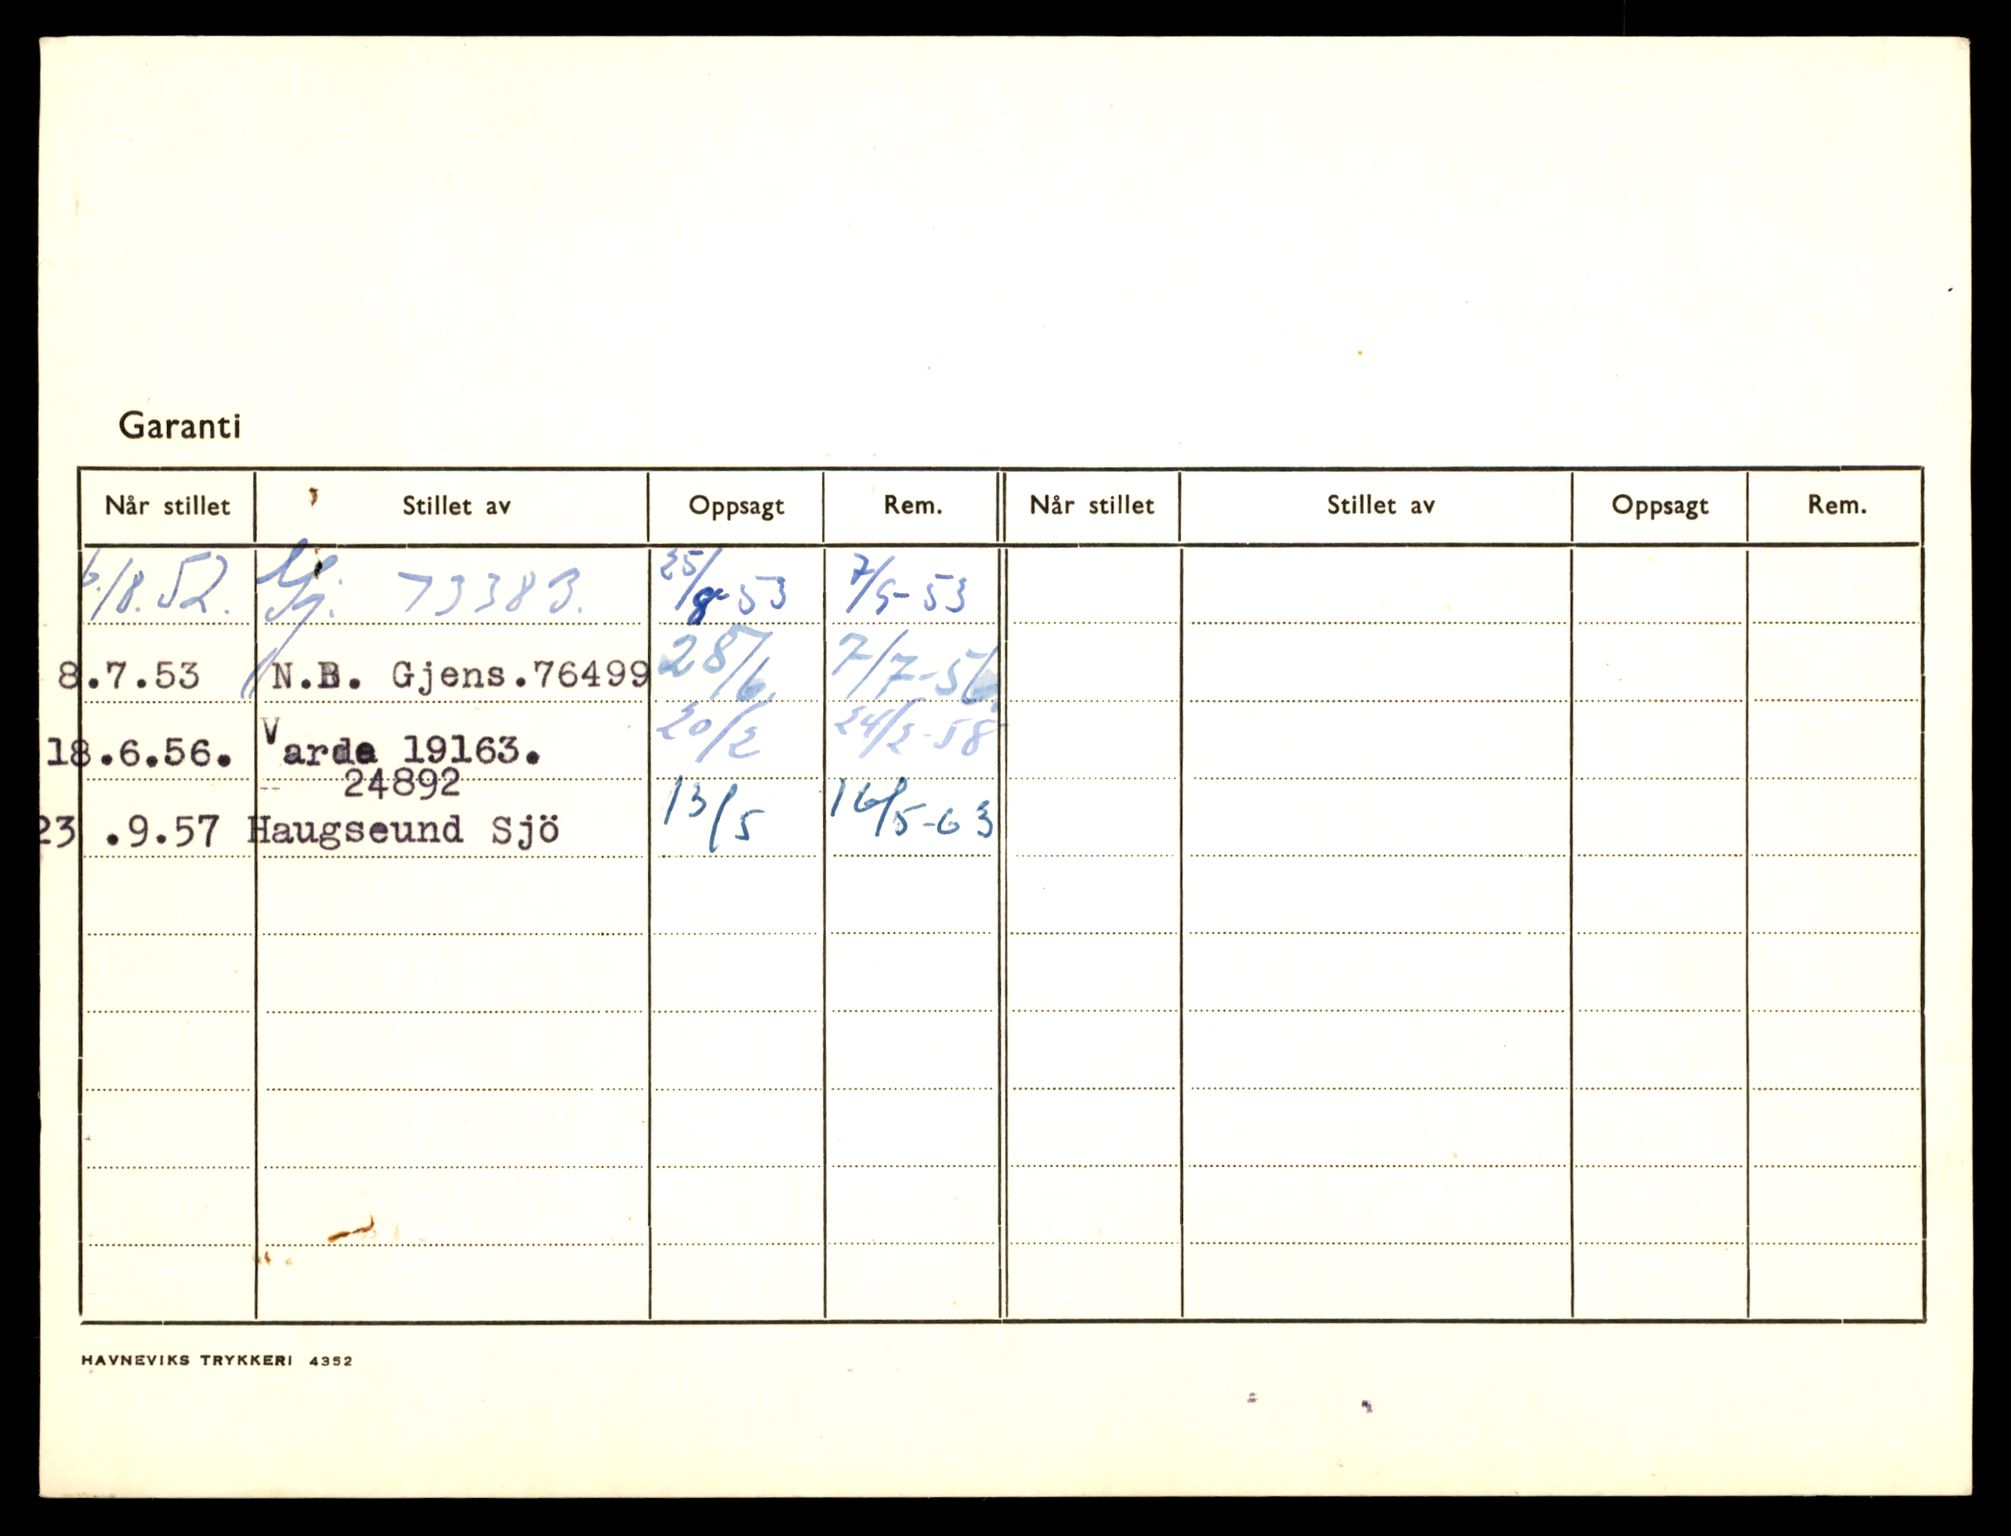 Garanti
Når stillet Stillet av Oppsagt Rem. Når stillet Stillet av Oppsagt Rem.
/8.52. Gj. 73383. 25/8-53 7/9-53
8.7.53 N.B. Gjens.76499 28/6. 7/7-56
18.6.56. Varde 19163. 20/2 24/2-58
-- 24892
23 .9.57 Haugseund Sjö 13/5 16/5-63
HAVNEVIKS TRYKKERI 4352